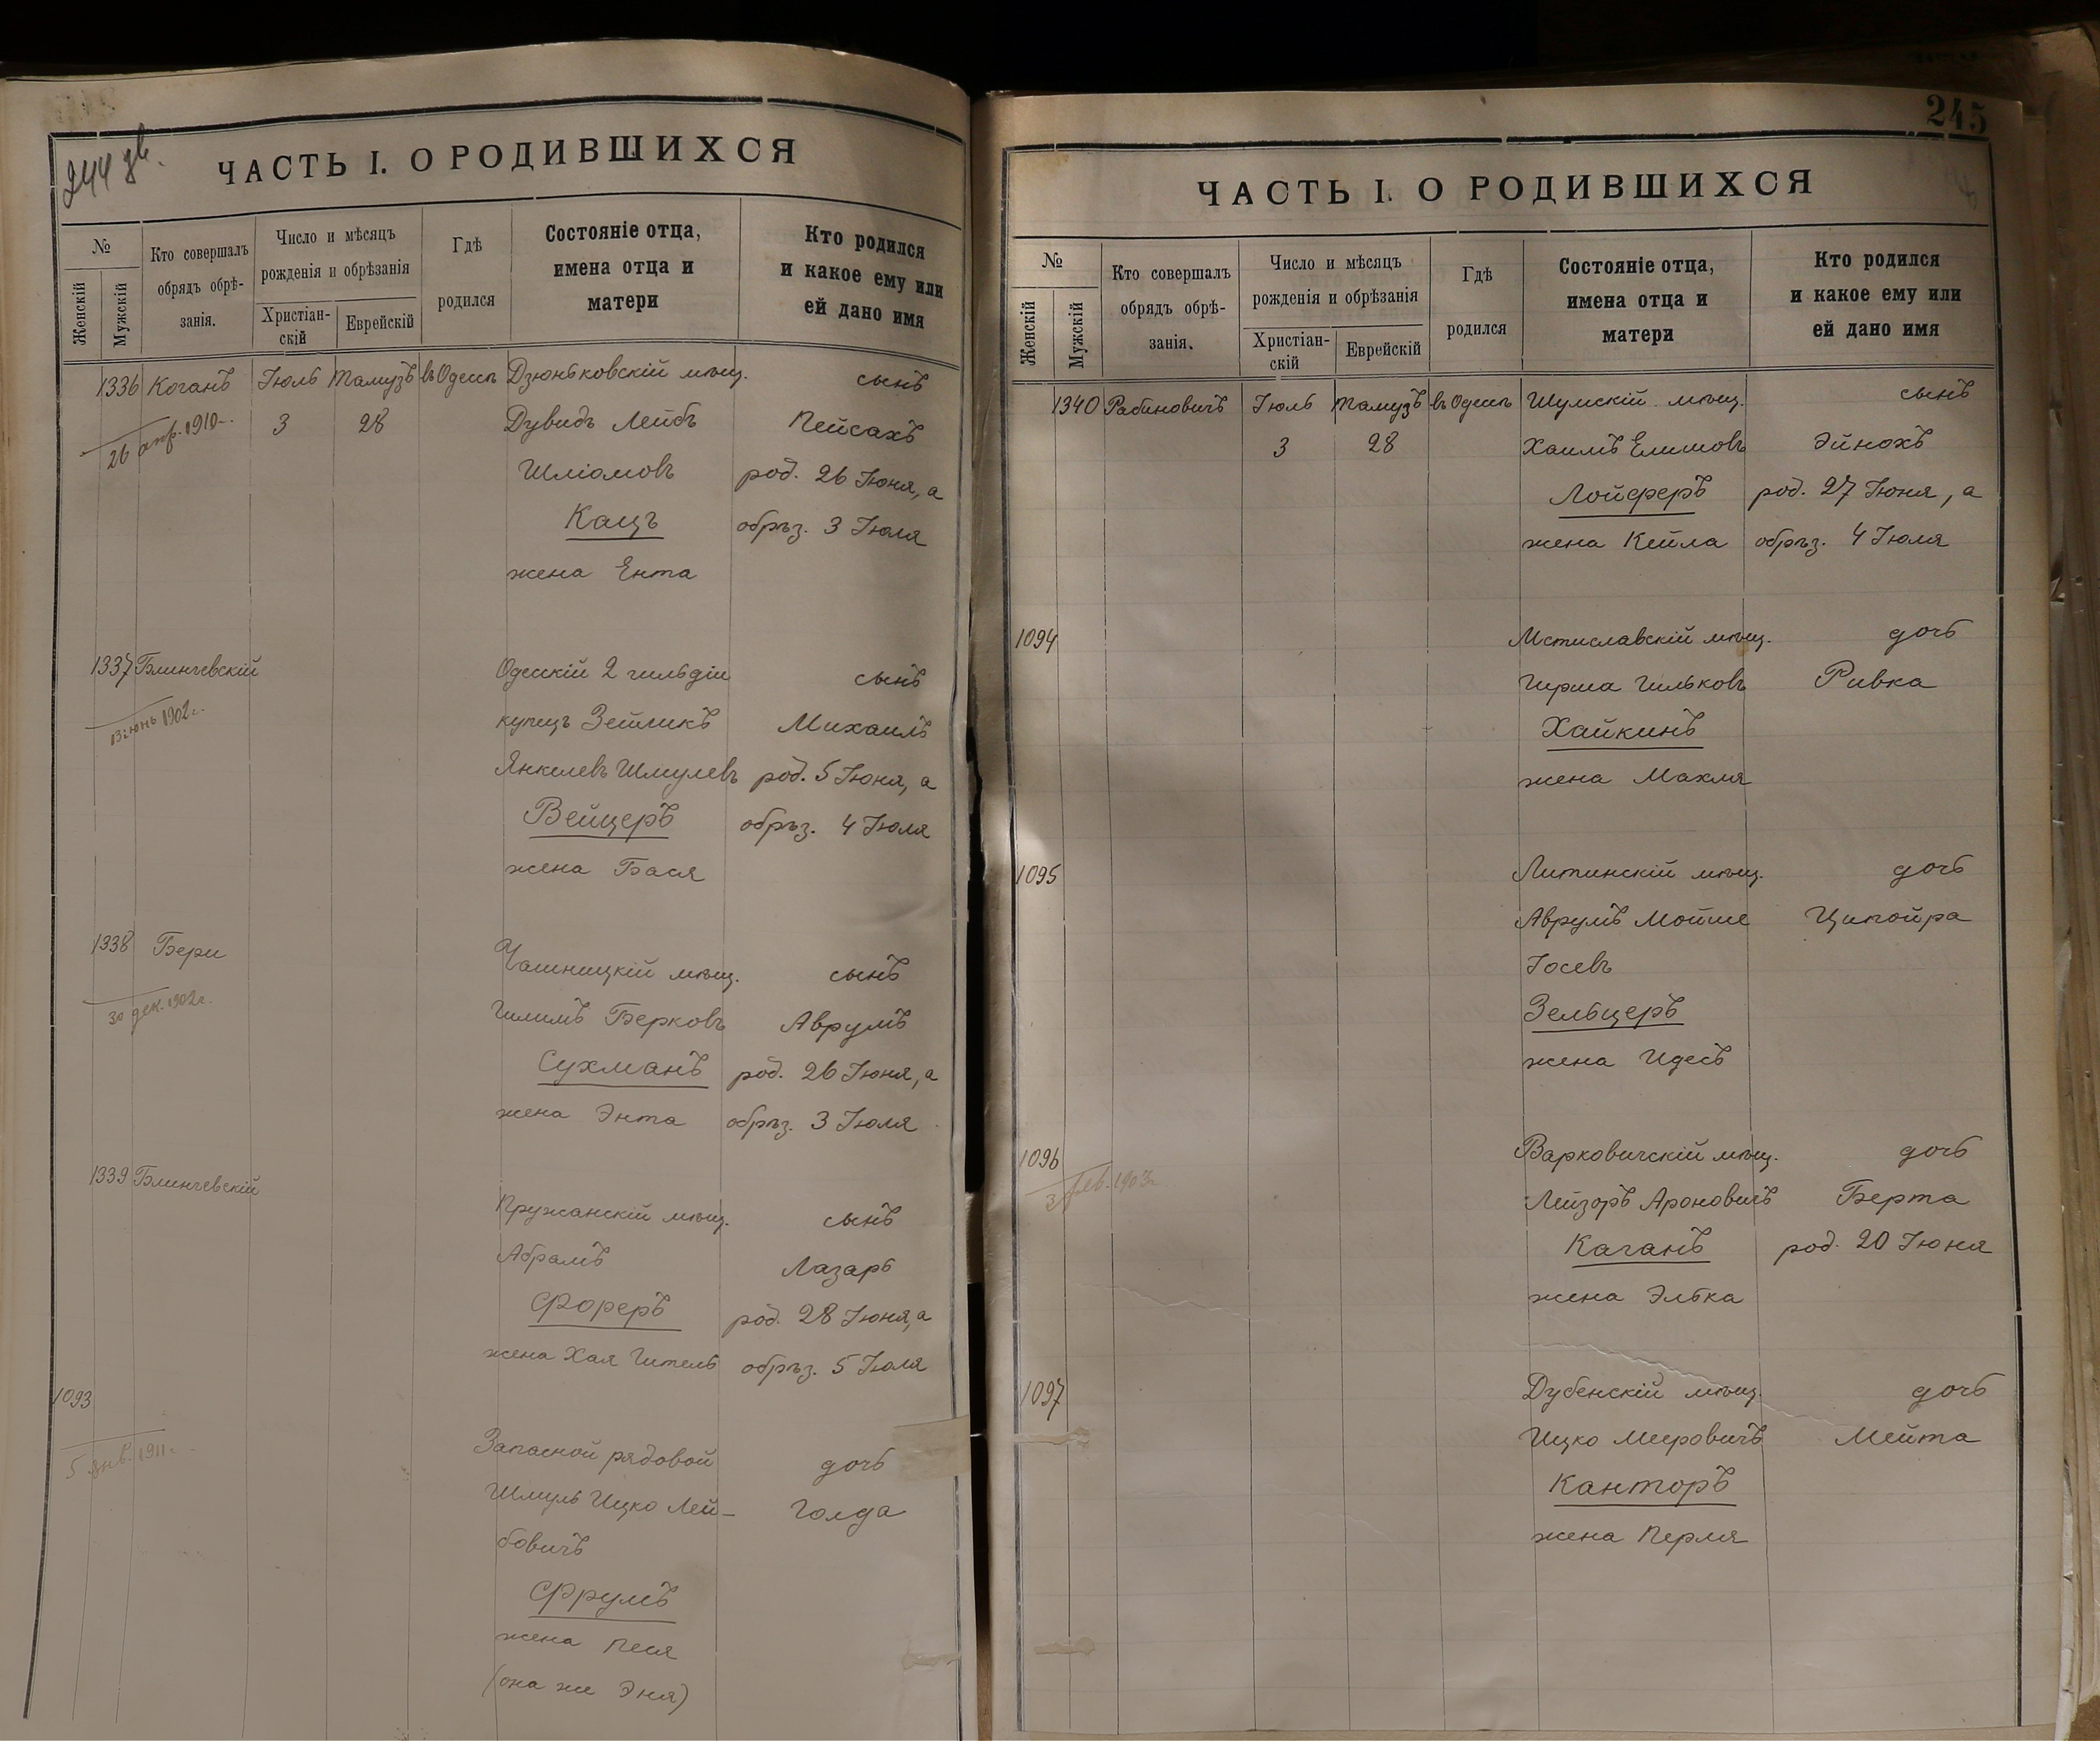 244 зв.
ЧАСТЬ I. О РОДИВШИХСЯ
№
Женскій
Мужскій
Кто совершалъ
обрядъ обрѣ-
занія.
Число и мѣсяцъ
рожденія и обрѣзанія
Христіан-
скій
Еврейскій
Гдѣ
родился
Состояніе отца,
имена отца и
матери
Кто родился
и какое ему или
ей дано имя
1336 Коганъ Іюль Тамузъ въ Одессѣ Дзюньковскій мѣщ. сынъ
26 апр. 1910 г. 3 28 Дувидъ Лейбъ Пейсахъ
Шліомовъ род. 26 Іюня, а
Кацъ обрѣз. 3 Іюля
жена Ента
1337 Блинчевскій Одесскій 2 гильдіи сынъ
13 іюнь 1902 г. купецъ Зейликъ Михаилъ
Янкелевъ Шмулевъ род. 5 Іюня, а
Вейцеръ обрѣз. 4 Іюля
жена Бася
1338 Бери Чашницкій мѣщ. сынъ
30 дек. 1902 г. Гилимъ Берковъ Аврумъ
Сухманъ род. 26 Іюня, а
жена Энта обрѣз. 3 Іюля
1339 Блинчевскій Пружанскій мѣщ. сынъ
Абрамъ Лазарь
Фореръ род. 28 Іюня, а
жена Хая Гитель обрѣз. 5 Іюля
1093 Запасной рядовой дочь
5 янв. 1911 г. Шмуль Ицко Лей-
Голда
бовичъ
Фрумъ
жена Песя
(она же Эня)
245
ЧАСТЬ I. О РОДИВШИХСЯ
№
Женскій
Мужскій
Кто совершалъ
обрядъ обрѣ-
занія.
Число и мѣсяцъ
рожденія и обрѣзанія
Христіан-
скій
Еврейскій
Гдѣ
родился
Состояніе отца,
имена отца и
матери
Кто родился
и какое ему или
ей дано имя
1340 Рабиновичъ Іюль Тамузъ въ Одессѣ Шумскій мѣщ. сынъ
3 28 Хаимъ Елимовъ Эйнохъ
Лойферъ род. 27 Іюня, а
жена Кейла обрѣз. 4 Іюля
1094 Мстиславскій мѣщ. дочь
Гирша Гильковъ Ривка
Хайкинъ
жена Махля
1095 Литинскій мѣщ. дочь
Аврумъ Мойше Ципойра
Іосевъ
Зельцеръ
жена Идесъ
1096 Варковичскій мѣщ. дочь
3 фев. 1903 г. Лейзоръ Ароновичъ Берта
Каганъ род. 20 Іюня
жена Элька
1097 Дубенскій мѣщ. дочь
Ицко Мееровичъ Мейта
Канторъ
жена Перля